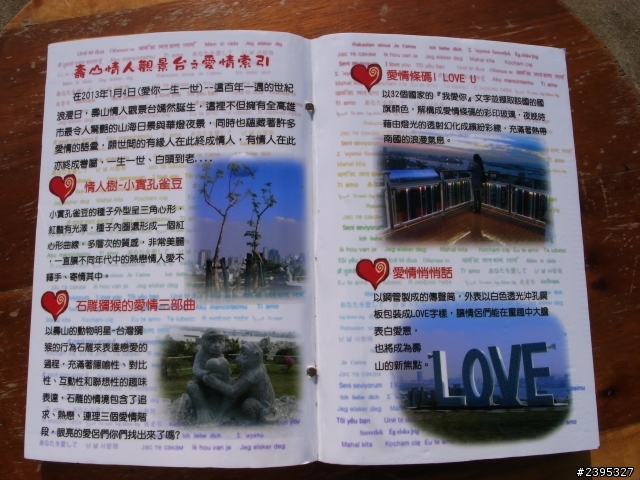 壽山情人觀景台之愛情索引
在2013年1月4日(愛你一生一世)--這百年一遇的世紀
浪漫日，壽山情人觀景台嫣然誕生，這裡不但擁有全高雄
市最令人驚艷的山海日景與華燈夜景，同時也蘊藏著許多
愛情的語彙，願世間的有緣人在此終成情人，有情人在此
亦終成眷屬，一生一世、白頭到老....
情人樹-小實孔雀豆
小實孔雀豆的種子外型呈三角心形，
紅豔有光澤，種子內還隱形成一個紅
心形曲線，多層次的質感，非常美麗
，一直讓不同年代中的熱戀情人愛不
釋手、寄情其中。
石雕獼猴的愛情三部曲
以壽山的動物明星-台灣獼
猴的行為石雕來表達戀愛的
過程，充滿著隱喻性、對比
性、互動性和聯想性的趣味
表達，石雕的情境包含了追
求、熱戀、連理三個愛情階
段，眼亮的愛侶們你們找出來了嗎?
愛情條碼I LOVE U
以32個國家的『我愛你』文字並擷取該國的國
旗顏色，解構成愛情條碼的彩印玻璃，夜晚時
藉由燈光的透射幻化成繽紛彩繪，充滿著熱帶
南國的浪漫氣息。
愛情悄悄話
以鋼管製成的傳聲筒，外表以白色透光沖孔鋼
板包裝成LOVE字樣，讓情侶們能在重趣中大膽
表白愛意，
也將成為壽
山的新焦點。
LOVE
#2395327